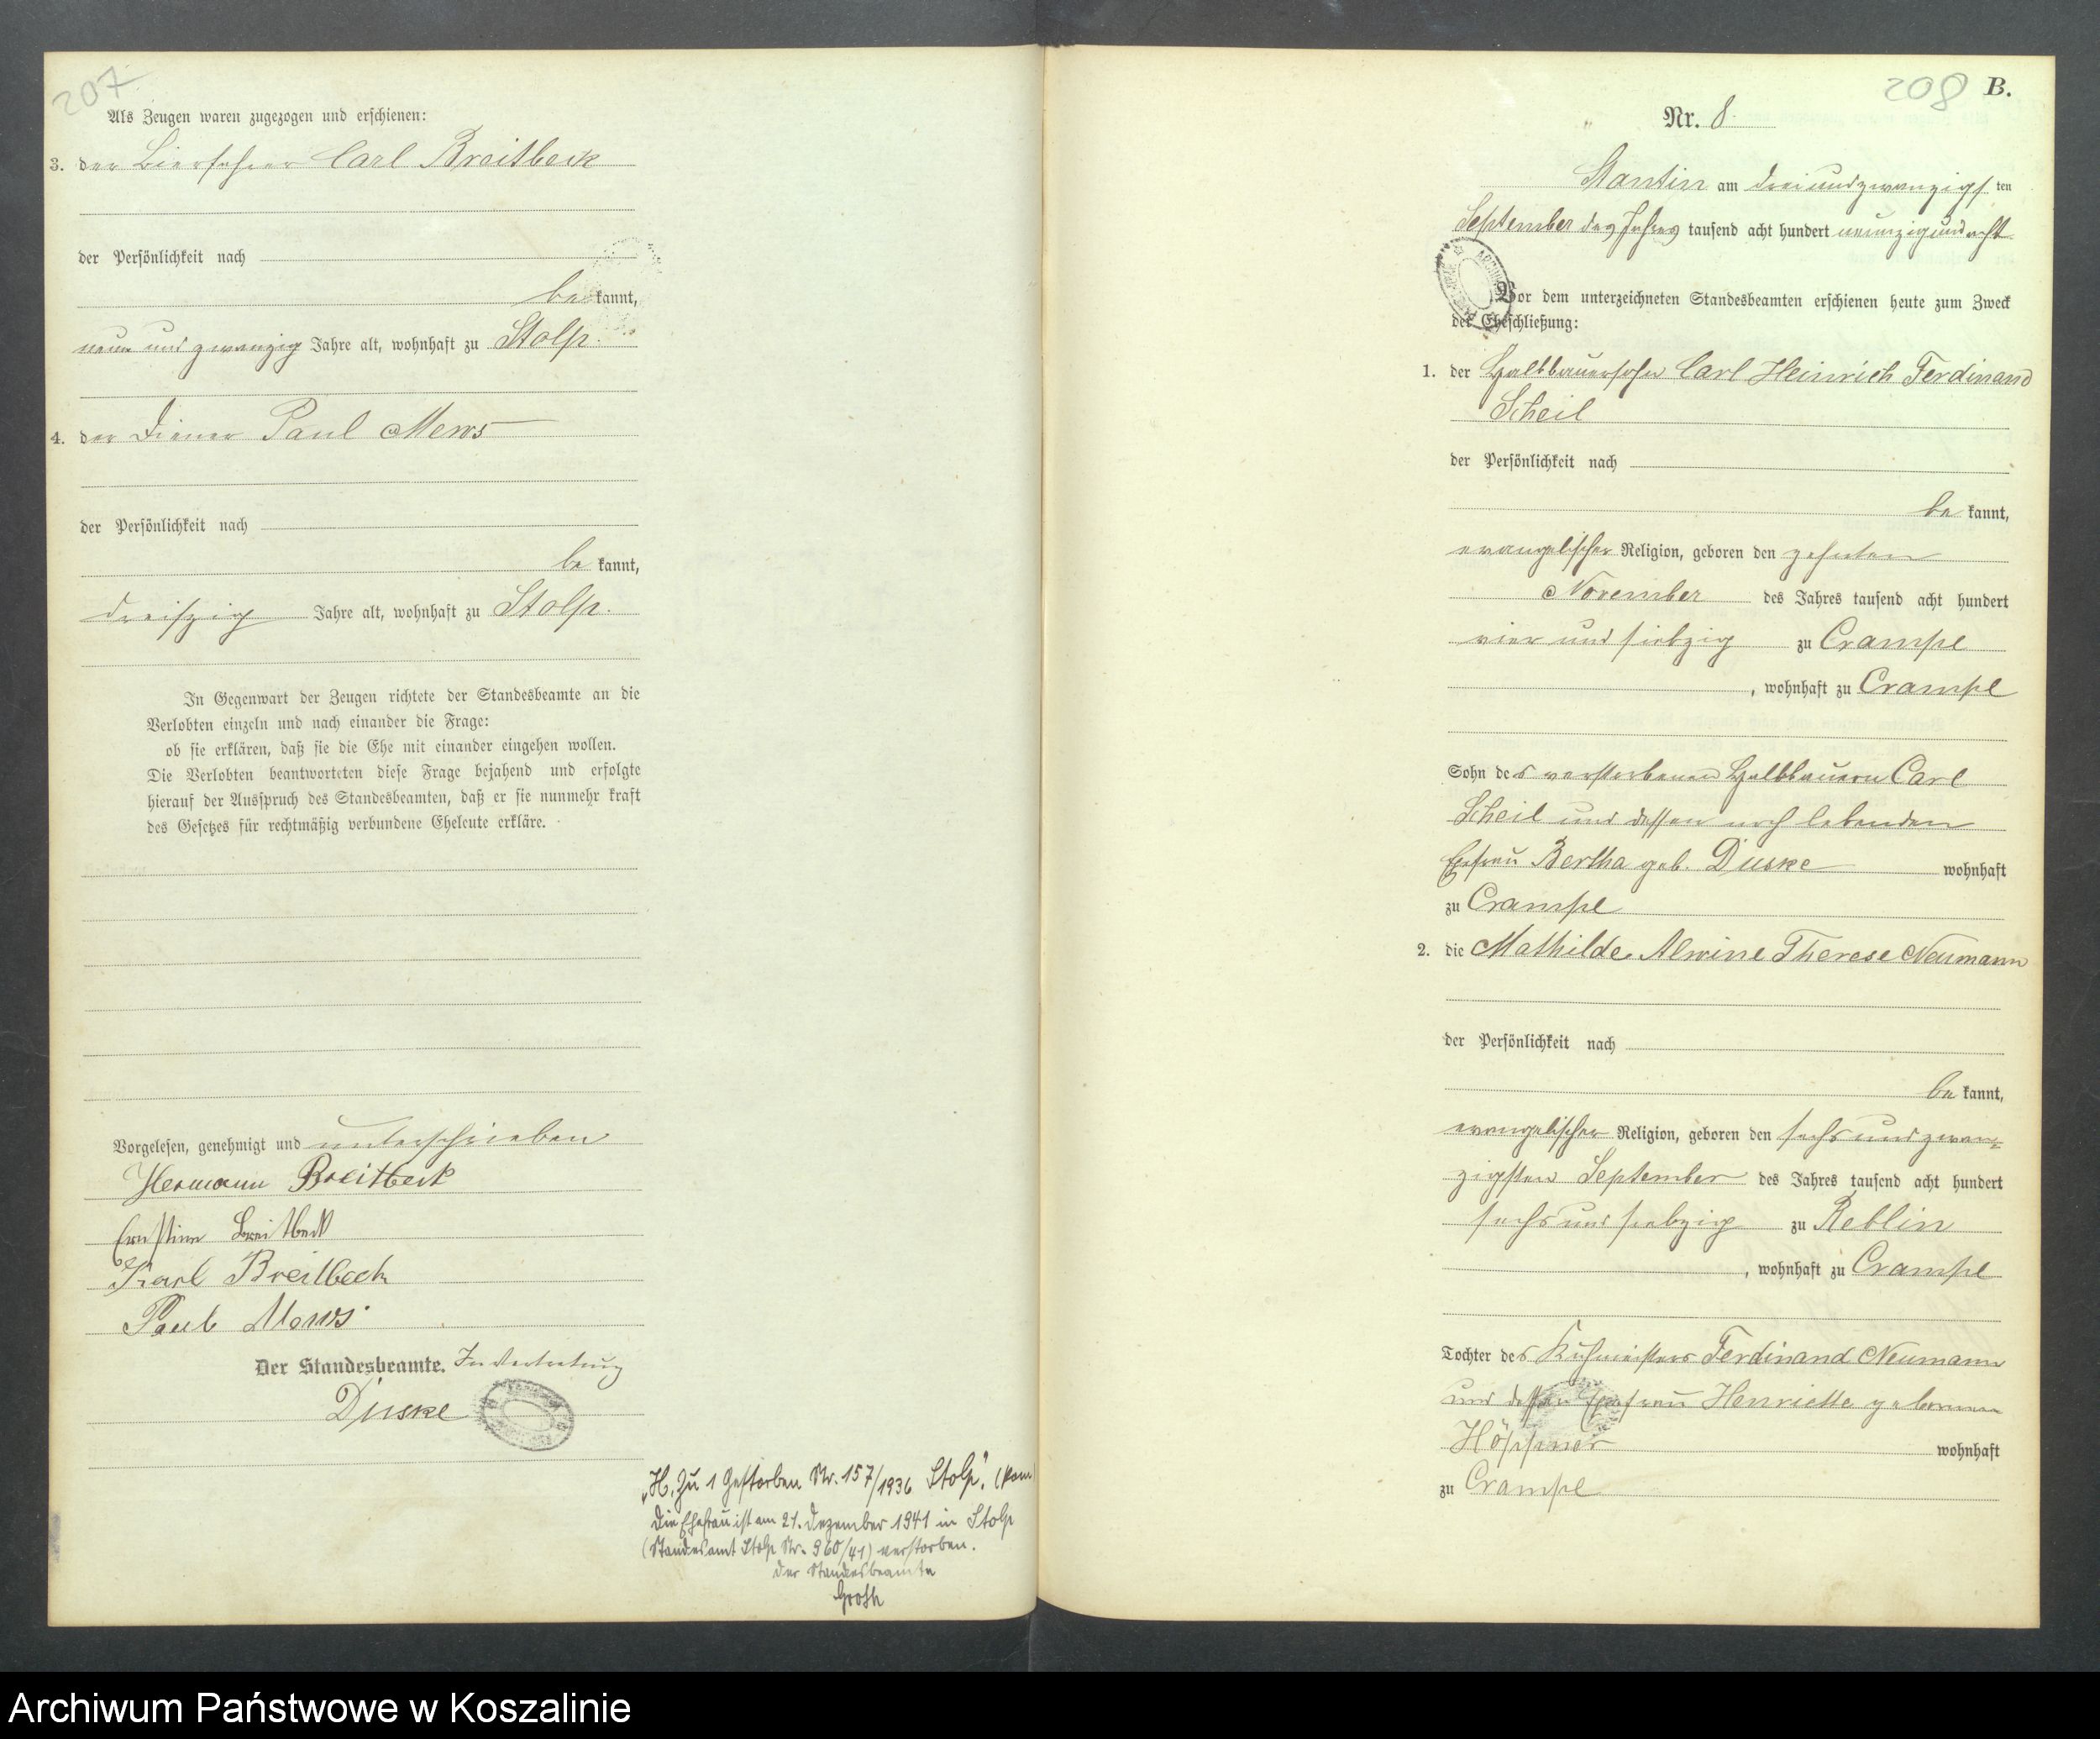 207
Als Zeugen waren zugezogen und erschienen:
3. der Bierfahrer Carl Breitbeck
der Persönlichkeit nach
be kannt,
neun und zwanzig Jahre alt, wohnhaft zu Stolp.
4. der Diener Paul Mews
der Persönlichkeit nach
be kannt,
dreißzig Jahre alt, wohnhaft zu Stolp.
In Gegenwart der Zeugen richtete der Standesbeamte an die
Verlobten einzeln und nach einander die Frage:
ob sie erklären, daß sie die Ehe mit einander eingehen wollen.
Die Verlobten beantworteten diese Frage bejahend und erfolgte
hierauf der Ausspruch des Standesbeamten, daß er sie nunmehr kraft
des Gesetzes für rechtmäßig verbundene Eheleute erkläre.
Vorgelesen, genehmigt und unterschrieben
Hermann Breitbeck
Ernstine Breitbeck
Karl Breitbeck
Paul Mews
Der Standesbeamte. In Vertretung
Duske
„H. Zu 1 Gestorben Nr. 157/1936 Stolp".
Die Ehefrau ist am 21. Dezember 1941 in Stolp
(Standesamt Stolp Nr. 960/41) verstorben.
Der Standesbeamte
Groth
208 B.
Nr. 8.
Stantin am drei und zwanzigs ten
September des Jahres tausend acht hundert neunzig und acht
Vor dem unterzeichneten Standesbeamten erschienen heute zum Zweck
der Eheschließung:
1. der Halbbauersohn Carl Heinrich Ferdinand
Scheil
der Persönlichkeit nach
be kannt,
evangelischer Religion, geboren den zehnten
November des Jahres tausend acht hundert
vier und siebzig zu Crampe
, wohnhaft zu Crampe
Sohn des verstorbenen Halbbauern Carl
Scheil und dessen noch lebenden
Ehefrau Bertha geb. Duske wohnhaft
zu Crampe
2. die Mathilde Alwine Therese Neumann
der Persönlichkeit nach
be kannt,
evangelischer Religion, geboren den sechs und zwan-
zigsten September des Jahres tausend acht hundert
sechs und siebzig zu Reblin
, wohnhaft zu Crampe
Tochter des Kuhmeisters Ferdinand Neumann
und dessen Ehefrau Henriette geborenen
Höppner wohnhaft
zu Crampe
Archiwum Państwowe w Koszalinie